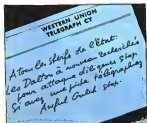 WESTERN UNION
TELEGRAPH CY
A Tous les Sherifs de l'Etat.
Les Dalton à nouveau recherchés
pour attaque diligence stop.
Si avez une piste télégraphiez
Awful Gulch stop.